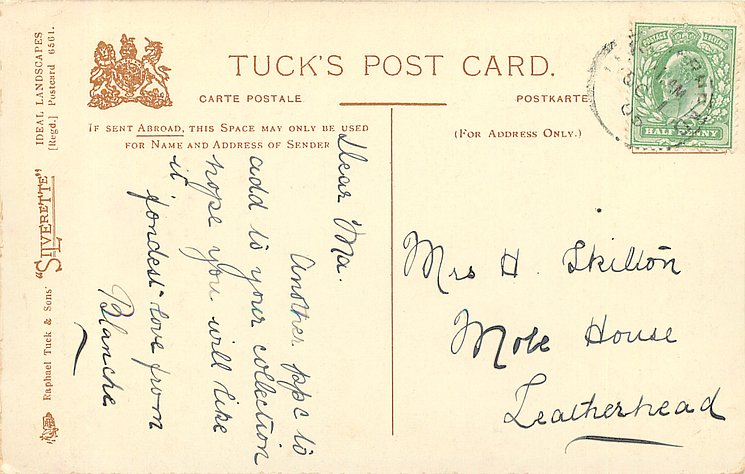 TUCK'S POST CARD.
CARTE POSTALE
POSTKARTE
IF SENT ABROAD, THIS SPACE MAY ONLY BE USED
FOR NAME AND ADDRESS OF SENDER
(FOR ADDRESS ONLY.)
HALFPENNY
IDEAL LANDSCAPES
[Regd.] Postcard 6561.
Raphael Tuck & Sons' "SILVERETTE"
Dear Ma.
Another ppc to
add to your collection
hope you will like
it
fondest love from
Blanche
Mrs H. Skilton
Mole House
Leatherhead